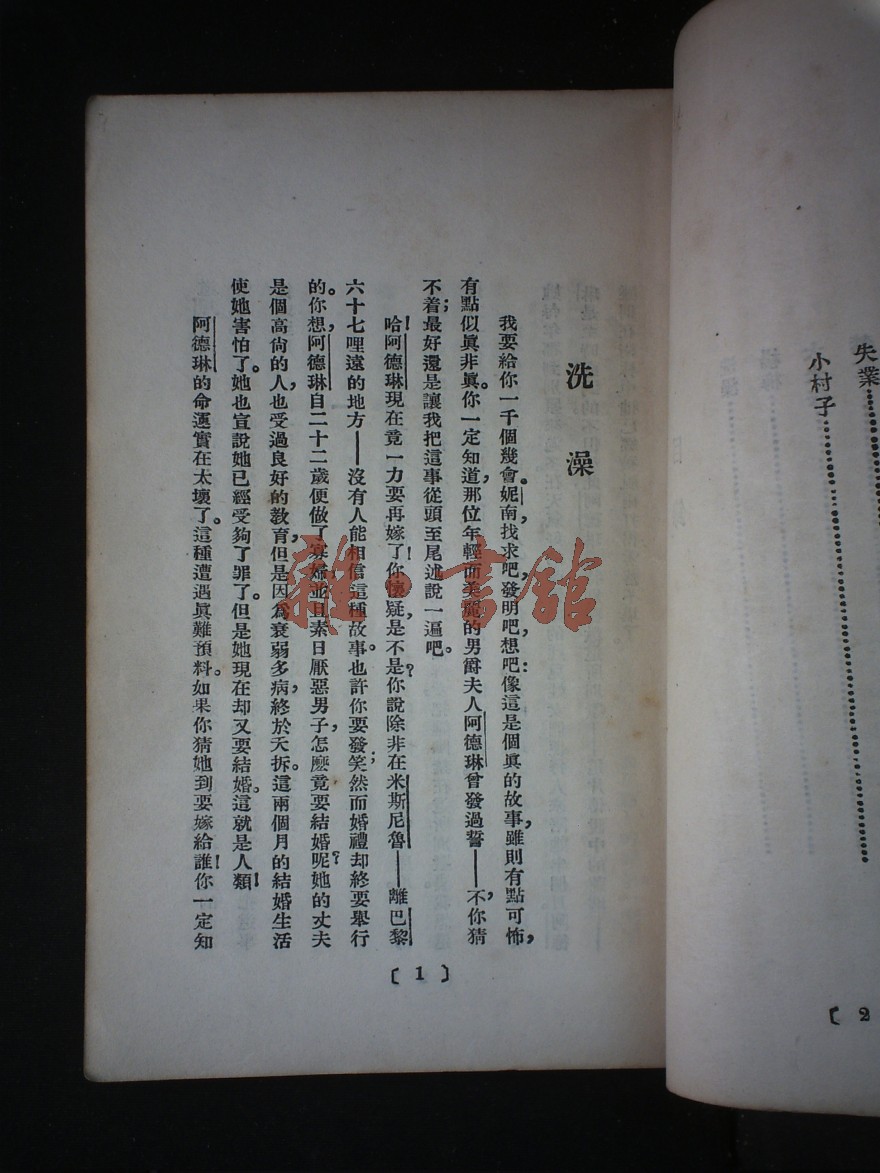 失業
小村子
〔 2
洗澡
我要給你一千個幾會。妮南,找求吧,發明吧,想吧:像這是個眞的故事,雖則有點可怖,
有點似眞非眞。你一定知道,那位年輕而美麗的男爵夫人阿德琳曾發過誓——不,你猜
不着;最好還是讓我把這事從頭至尾述說一遍吧。
哈!阿德琳現在竟一力要再嫁了!你懷疑,是不是?你說除非在米斯尼魯——離巴黎
六十七哩遠的地方——沒有人能相信這種故事。也許你要發笑;然而婚禮却終要舉行
的。你想,阿德琳自二十二歲便做了寡婦,並且素日厭惡男子,怎麽竟要結婚呢?她的丈夫
是個高尙的人,也受過良好的敎育,但是因爲衰弱多病,終於夭拆。這兩個月的結婚生活
使她害怕了。她也宣說她已經受夠了罪了。但是她現在却又要結婚。這就是人類!
阿德琳的命運實在太壞了。這種遭遇眞難預料。如果你猜她到要嫁給誰!你一定知
〔 1 〕
雜·書館